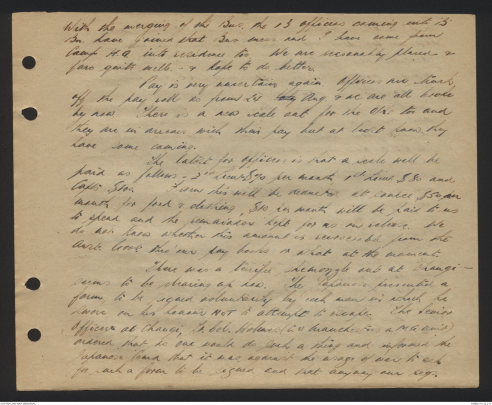 With the merging of the Bns. the 13 officers coming into B
Bn. have joined that Bns mess and I have come from
Camp H.Q. into residence too. We are reasonably placed &
fare quite well & hope to do better.
Pay is very uncertain again. Officers are struck
off the pay roll as from 24 Aug & we are all broke
by now. There is a new scale out for the O/Rs too and
they are in arrears with their pay but at least know they
have some coming.
The latest for officers is that a scale will be
paid as follows - 2nd Lieut $70 per month 1st Lieut $80 and
Capt. From this will be deducted at source $50 per
month for food & clothing, $10 per month will be paid to us
to spend and the remainder held for us on release. We
do not know whether this amount is recoverable from the
our pay books or what at the moment.
There was a terrific shemozzle out at Changi -
seems to be clearing up now. The Japanese presented a
form to be signed voluntarily by each man in which he
swore on his honour NOT to attempt to escape. The Senior
Officer at Changi, Lt Col. Holmes
ordered that no one would do such a thing and informed the
Japanese that it was against the usage of war to ask
for such a form to be signed and that anyway our regs.